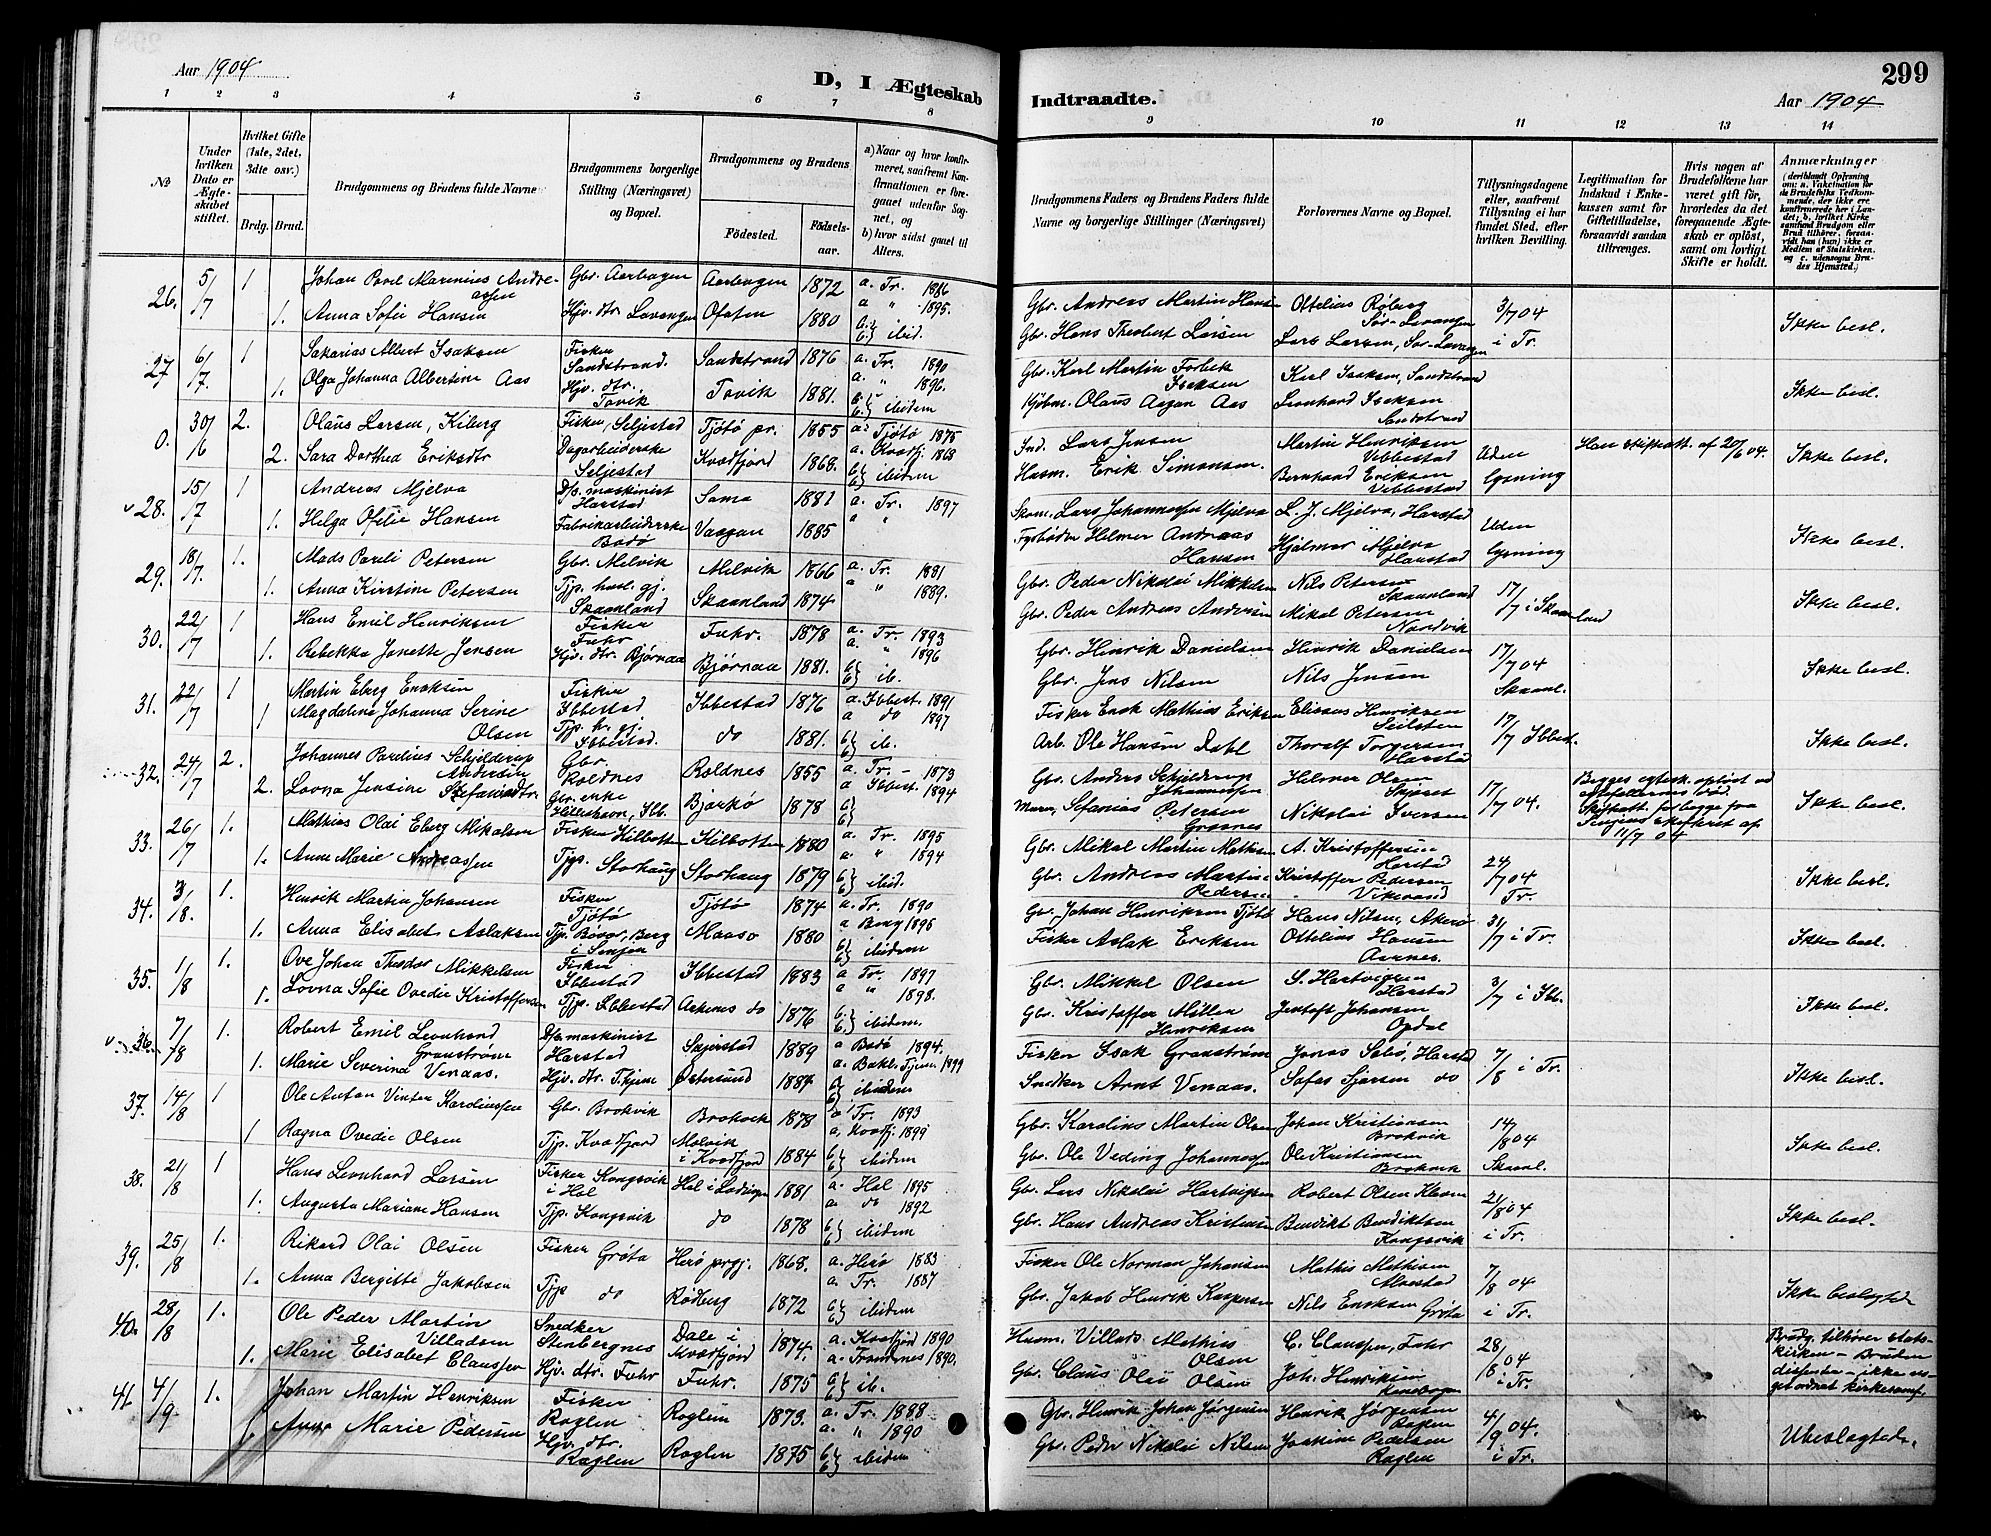 Aar 1904
D, I Ægteskab
1 2 3 4 5 6 7 8
№
Under hvilken Dato er Ægteskabet stiftet.
Hvilket Gifte (1ste, 2det, 3dte osv.)
Brdg. Brud.
Brudgommens og Brudens fulde Navne
Brudgommens borgerlige Stilling (Næringsvei) og Bopæl.
Brudgommens og Brudens
Fødested. Fødselsaar.
a) Naar og hvor konfirmeret, saafremt Konfirmationen er foregaaet udenfor Sognet, og
b) hvor sidst gaaet til Alters.
26. 5/7 1 Johan Povel Marinius Andreassen Gbr. Aarbogen Aarbogen 1872 a. Tr. 1886
1. Anna Sofie Hansen Hjv. dtr. Lavangen Ofoten 1880 a " 1895. ibid.
27 6/7. 1 Sakarias Albert Isaksen Fisker Sandstrand. Sandstrand 1876 a. Tr. 1890
1. Olga Johanna Albertine Aas Hjv. dtr. Tovik Tovik 1881. a. " 1896. ibidem
0. 30/6 2. Olaus Larsen, Kiberg Fisker, Seljestad Tjøtø pr. 1855 a. Tjøtø 1875
2. Sara Dorthea Eriksdtr Dagarbeiderske Seljestad Kvædfjord 1868. a. Kvædfj. 1863 ibidem
28. 15/7 1 Andreas Mjelva Dfs. maskinist Harstad Sama 1881 a. Tr. 1897
1. Helga Ofelie Hansen Fabrikarbeiderske Bodø Vaagan 1885 a "
29. 18/7. 1. Mads Pareli Petersen Gbr. Melvik Melvik 1866 a. Tr. 1881
1. Anna Kirstine Petersen Tjp. husl. gj. Skaanland Skaanland 1874 a " 1889.
30. 22/7 1 Hans Emil Henriksen Fisker Fuhr Fuhr. 1878 a. Tr. 1893
1. Rebekka Janette Jensen Hjv. dtr. Bjørnaa Bjørnaa 1881. a. " 1896 ib.
31. 22/7 1 Martin Eberg Eriksen Fisker Ibbestad Ibbestad 1876 a. Ibbest. 1891
1 Magdalena Johanna Serine Olsen Tjp. h. gj. Ibbestad. do 1881. a do 1897 ib.
32. 24/7 2. Johannes Parelius Schjelderup Andersen Gbr. Roldnes Roldnes 1855 a. Tr. 1873
2. Lovna Jensine Stefanusdtr. Gbr. enke Hilleshavn, Ibb. Bjarkø 1878 a Ibbest. 1894
33. 26/7 1. Mathias Olai Eberg Mikalsen Fisker Kilbotten Kilbotten 1880 a. Tr. 1895
1. Anne Marie Andreassen Tjp. Storhaug Storhaug 1879 a. " 1894 ibid.
34. 3/8. 1. Henrik Martin Johansen Fisker Tjøtø Tjøtø 1874 a. Tr. 1890
1. Anna Elisabet Aslaksen Tjp. Berg i Senjen Maasø 1880 a Berg 1896 ibidem
35. 1/8 1. Ove Johan Theodor Mikkelsen Fisker Ibbestad Ibbestad 1883 a Tr. 1897
1. Lovna Sofie Ovedie Kristoffersen Tjp. Ibbestad do 1876 a " 1898. ibidem.
36. 7/8 1. Robert Emil Leonhard Granstrøm Dfs. maskinist Harstad Skjerstad 1889 a Bodø 1894.
1. Marie Severina Venaas. Hjv. dtr. Østersund 1884 a. 1899 ibidem
37. 14/8 1 Ole Anton Vinter Karoliussen Gbr. Brokvik Brokvik 1878 a Tr. 1893
1 Ragna Ovedie Olsen Tjp. Kvædfjord Melvik i Kvædfjord 1884 a. Kvædfj. 1899 ibidem
38. 21/8 1 Hans Leonhard Larsen Fisker Kongsvik i Hol Hol i Lødingen 1881 a. Hol 1895
1. Augusta Mariane Hansen Tjp. Kongsvik do 1878 a. do 1892 ibidem
39. 25/8 1. Rikard Olai Olsen Fisker Grøta Herø prgj. 1868. a. Herø 1883
1. Anna Bergitte Jakobsen Tjp do Rødberg 1872 a. Tr. 1887 ibidem
40. 28/8 1. Ole Peder Martin Villadsen Snedker Stenbergnes Dale i Kvædfjord 1874. a. Kvædfjord 1890
1. Marie Elisabet Claussen Hjv. dtr. Fuhr Fuhr. 1875 a. Trondenes 1890. ib.
41 4/9 1. Johan Martin Henriksen Fisker Roglen Roglen 1873. a. Tr. 1888
Anna Marie Pedersen Hjv. dtr. Roglen Roglen 1875 a. " 1890 ibidem
Indtraadte.
299
Aar 1904
9 10 11 12 13 14
Brudgommens Faders og Brudens Faders fulde Navne og borgerlige Stillinger (Næringsvei)
Forlovernes Navne og Bopæl.
Tillysningsdagene eller, saafremt Tillysning ei har fundet Sted, efter hvilken Bevilling.
Legitimation for Indskud i Enkekassen samt for Giftetilladelse, forsaavidt saadan tiltrænges.
Hvis nogen af Brudefolkene har været gift før, hvorledes da det foregaaende Ægteskab er opløst, samt om lovligt Skifte er holdt.
Anmærkninger (deriblandt Oplysning om: a. Vakcination for de Brudefolks Vedkommende, der ikke ere konfirmerede her i Landet; b. hvilket Kirkesamfund Brudgom eller Brud tilhører, forsaavidt han (hun) ikke er Medlem af Statskirken, og c. udensogns Brudes Hjemsted.)
Gbr. Andreas Martin Hansen Ottelius Røberg Sør-Lavangen 3/7 04
Gbr. Hans Theobert Larsen Lars Larsen, Sør-Lavangen i Tr. Ikke besl.
Gbr. Karl Martin Forbek Isaksen Karl Isaksen, Sandstrand
Kjøbm. Olaus Aagan Aas Leonhard Isaksen Sandstrand Ikke besl.
Ind. Lars Jensen Martin Henriksen Vibbestad Uden Han skifteatt. af 20/6 04.
Husm. Erik Simonsen. Bernhard Eriksen Vibbestad lysning Ikke besl.
Skom. Lars Johannessen Mjelva L. J. Mjelva, Harstad Uden
Fyrbøder Helmer Andreas Hansen Hjalmar Mjelva Harstad lysning Ikke besl.
Gbr. Peder Nikolai Mikkelsen Nils Petersen Skaanland 17/7 i Skaanland
Gbr. Peder Andreas Andersen Mikal Petersen Nordvik Ikke besl.
Gbr. Henrik Danielsen Henrik Danielsen 17/7 04
Gbr. Jens Nilsen Nils Jensen Skaanl. Ikke besl.
Fisker Erik Mathias Eriksen Eliseus Henriksen 17/7 Ibbest.
Arb. Ole Hanson Dahl Thoralf Torgersen Harstad Ikke besl.
Gbr. Anders Schjelderup Johannessen Helmer Olsen 17/7 04.
Stefanias Petersen Nikolai Iversen Ikke besl.
Begges egtesk. opløst ved ektefællernes død. Skifteatt. for begge fra Senjens skifteret af 11/7 04
Gbr. Mikal Martin Mathisen A. Kristoffersen Harstad 24/7 04
Gbr. Andreas Martin Pedersen Kristoffer Pedersen Tr. Ikke besl.
Gbr. Johan Henriksen Tjøtø Hans Nilsen, 31/7 i Tr.
Fisker Aslak Eriksen Ottelius Hansen Aarnes. Ikke besl.
Gbr. Mikkel Olsen S. Hartvigsen Harstad 3/7 i Ibb.
Gbr. Kristoffer Møller Henriksen Jentoft Johansen Opdal Ikke besl.
Fisker Isak Granstrøm Jonas Sebø, Harstad 7/8 i Tr.
Snedker Arnt Venaas. Sofus do Ikke besl.
Gbr. Karolius Martin Olsen Johan Kristiansen Brokvik 14/8 04
Gbr. Ole Veding Johannessen Ole Kristiansen Brokvik Skaanl. Ikke besl.
Gbr. Lars Nikolai Hartvigsen Robert Olsen 21/8 04
Gbr. Hans Andreas Kristensen Benedikt Benediktsen Kongsvik i Tr. Ikke besl.
Fisker Ole Norman Johansen Mathis Mathisen 7/8 04
Gbr. Jakob Henrik Kaspersen Nils Eriksen Grøta i Tr. Ikke beslegtede
Husm. Villads Mathias Olsen C. Claussen, Fuhr 28/8 04
Gbr. Claus Olai Olsen Joh. Henriksen i Tr.
Brudg. tilhører statskirken – Bruden dissenter – ikke noget ordnet kirkesamf.
Gbr. Henrik Johan Jørgensen Henrik Jørgensen Roglen 4/9 04.
Gbr. Peder Nikolai Nilsen Joakim Pedersen Roglen i Tr. Ubeslegtede.